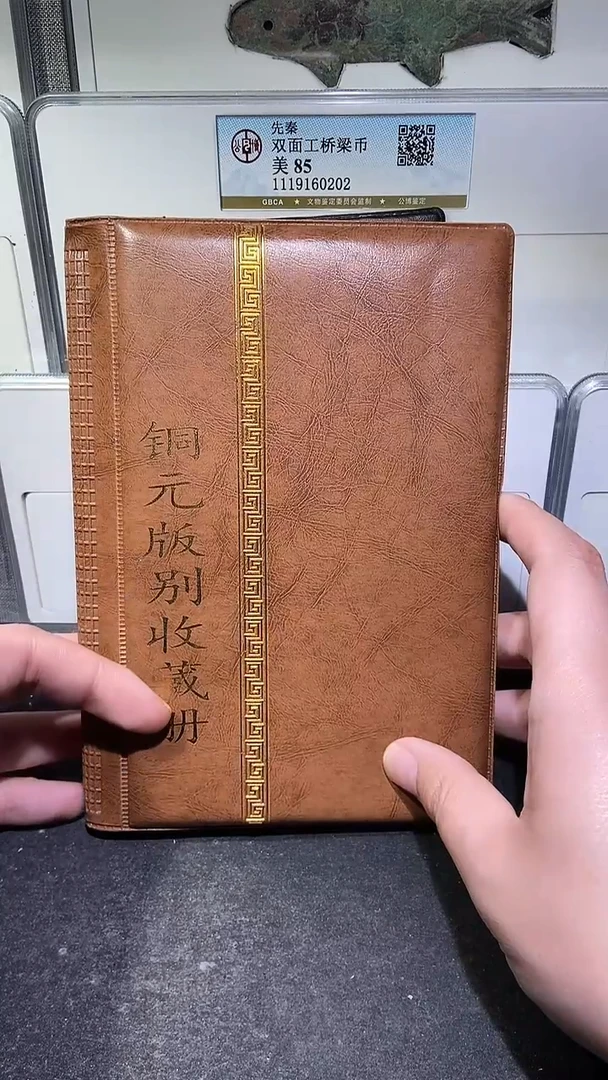 先秦
双面工桥梁币
美 85
1119160202
GBCA ★ 文物鉴定委员会监制 ★ 公博鉴定
铜元版别收藏册